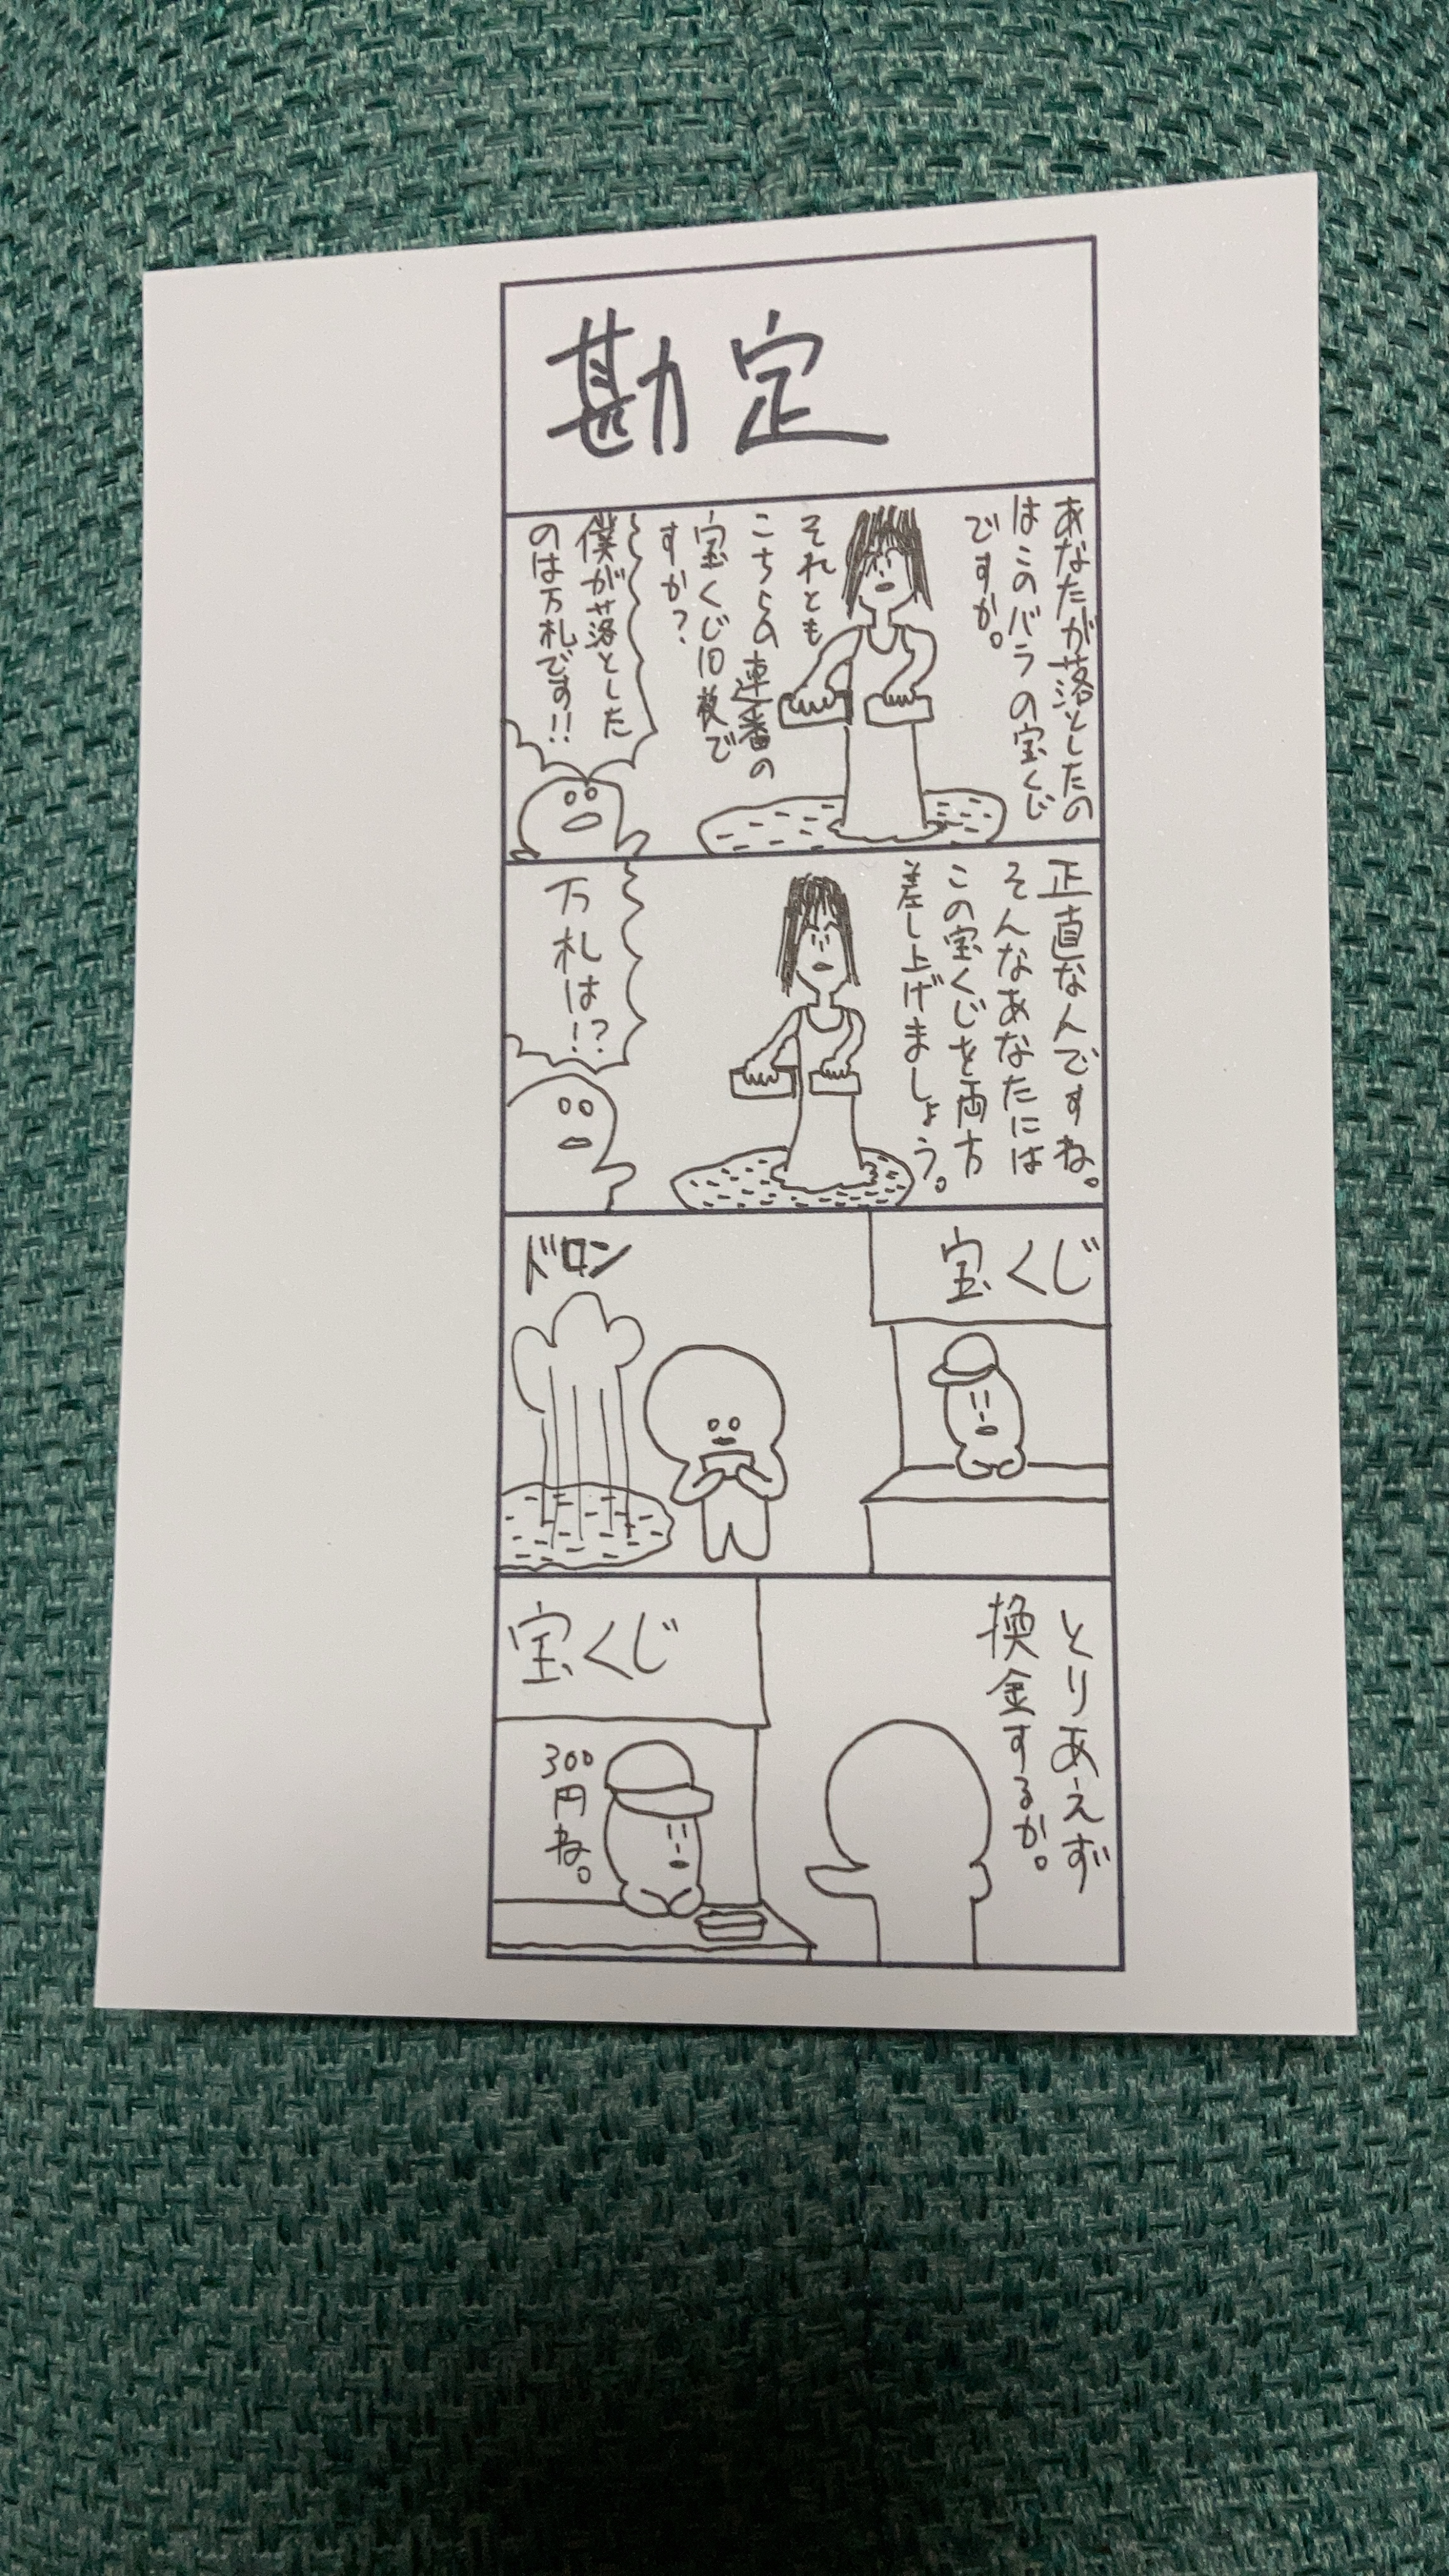 勘定
あなたが落としたの
はこのバラの宝くじ
ですか。
それとも
こちらの連番の
宝くじ10枚で
すか?
僕が落とした
のは万札です!!
正直なんですね。
そんなあなたには
この宝くじを両方
差し上げましょう。
万札は!?
宝くじ
ドロン
とりあえず
換金するか。
宝くじ
300
円
ね。